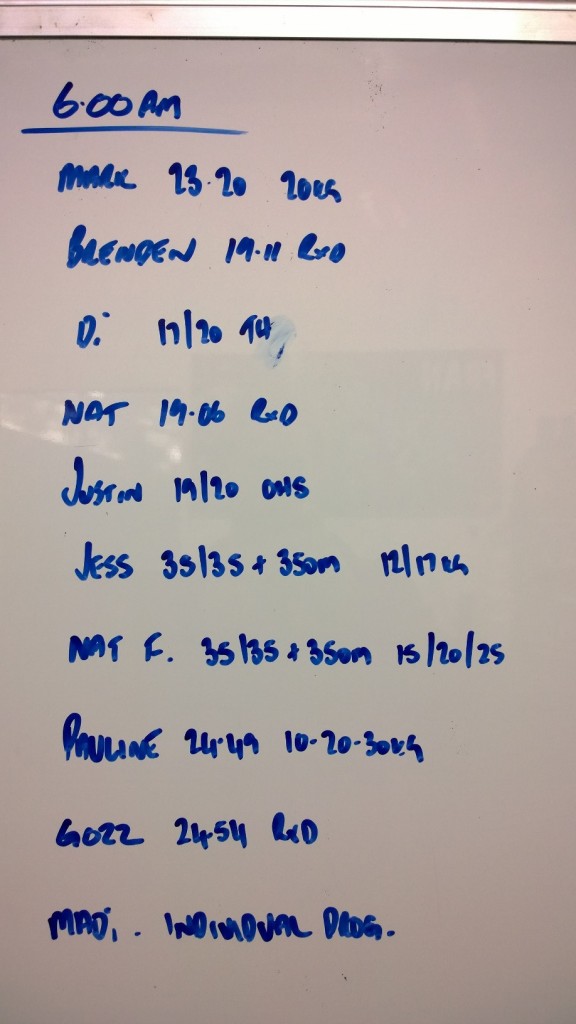 6.00AM
MARK 23.20 20KG
BRENDEN 19.11 RxD
Di 17/20
NAT 19.06 RxD
JUSTIN 19/20 OHS
JESS 35/35 + 350m 12/17KG
NAT F. 35/35 + 350m 15/20/25
PAULINE 24.49 10-20-30KG
GOZZ 24.54 RxD
MADi . INDIVIDUAL PROG.